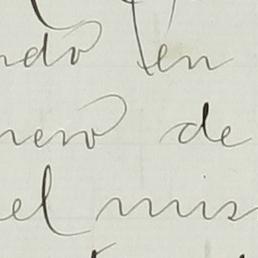 ndo en
nero de
el mis